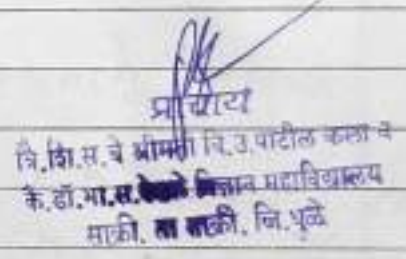 प्राचार्य
वि.शि.स.चे श्रीमती वि.उ.पाटील कला व
कै.डॉ.भा.स. विज्ञान महाविद्यालय
साक्री. ता साक्री. जि.धुळे